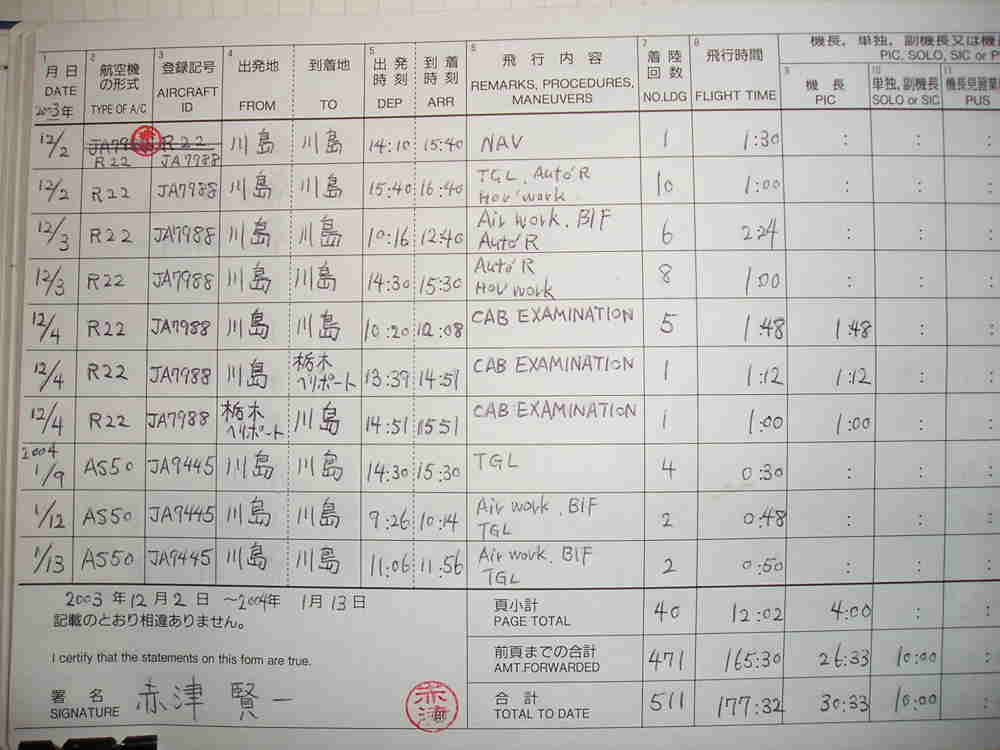 機長，単独，副機長又は機
PIC, SOLO, SIC or P
1 月日 DATE 2003年 2 航空機の形式 TYPE OF A/C 3 登録記号 AIRCRAFT ID 4 出発地 FROM 到着地 TO 5 出発時刻 DEP 到着時刻 ARR 6 飛行内容 REMARKS, PROCEDURES, MANEUVERS 7 着陸回数 NO.LDG 8 飛行時間 FLIGHT TIME 9 機長 PIC 10 単独, 副機長 SOLO or SIC 11 機長見習業 PUS
12/2 R22 JA7988 川島 川島 14:10 15:40 NAV 1 1:30
12/2 R22 JA7988 川島 川島 15:40 16:40 TGL, Auto'R Hov'work 10 1:00
12/3 R22 JA7988 川島 川島 10:16 12:40 Air work. BIF Auto'R 6 2:24
12/3 R22 JA7988 川島 川島 14:30 15:30 Auto'R Hov work 8 1:00
12/4 R22 JA7988 川島 川島 10:20 12:08 CAB EXAMINATION 5 1:48 1:48
12/4 R22 JA7988 川島 栃木ヘリポート 13:39 14:51 CAB EXAMINATION 1 1:12 1:12
12/4 R22 JA7988 栃木ヘリポート 川島 14:51 15:51 CAB EXAMINATION 1 1:00 1:00
2004 1/9 AS50 JA9445 川島 川島 14:30 15:30 TGL 4 0:30
1/12 AS50 JA9445 川島 川島 9:26 10:14 Air work. BIF TGL 2 0:48
1/13 AS50 JA9445 川島 川島 11:06 11:56 Air work. BIF TGL 2 0:50
2003年12月2日 ～2004年 1月13日
記載のとおり相違ありません。
I certify that the statements on this form are true.
署名 SIGNATURE 赤津 賢一
赤津
頁小計 PAGE TOTAL 40 12:02 4:00
前頁までの合計 AMT.FORWARDED 471 165:30 26:33 10:00
合計 TOTAL TO DATE 511 177:32 30:33 10:00